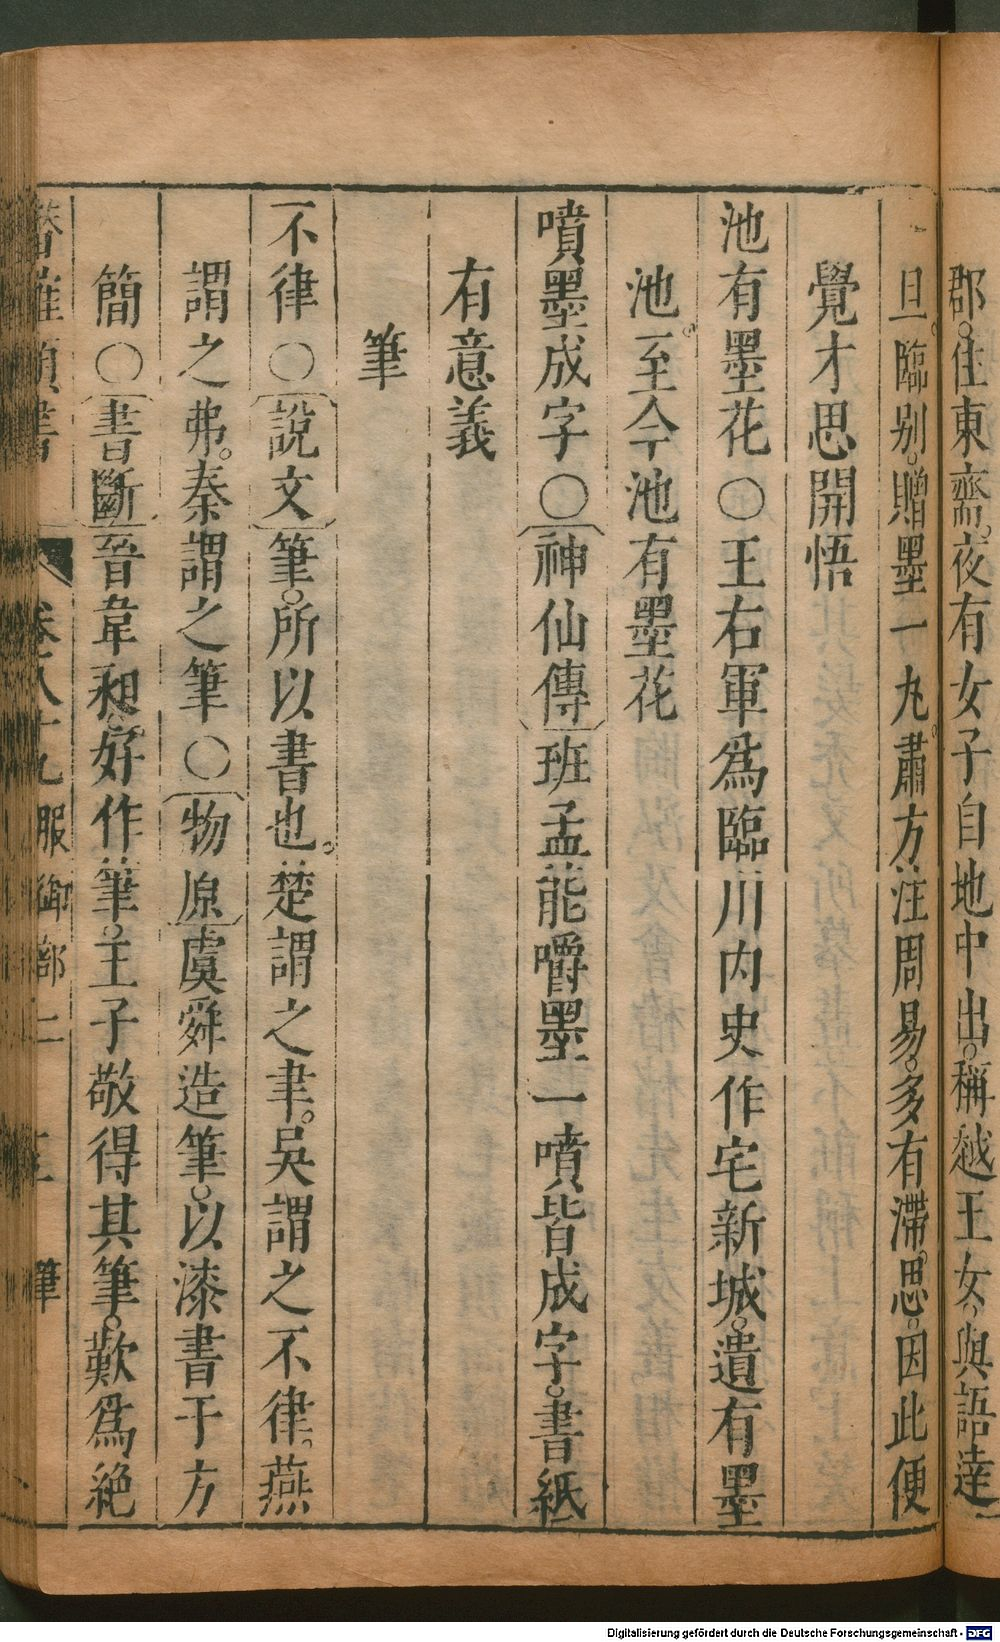 郡。住東齋。夜有女子自地中出。稱越王女。與語達
旦。臨别。贈墨一丸。肅方注周易。多有滯思。因此便
覺才思開悟
池有墨花〇王右軍爲臨川内史作宅新城。遺有墨
池。至今池有墨花
噴墨成字〇神仙傳班孟能嚼墨一噴皆成字。書紙
有意義
筆
不律〇說文筆。所以書也。楚謂之聿。吳謂之不律。燕
謂之弗。秦謂之筆〇物原虞舜造筆。以漆書于方
簡〇書斷晉韋昶。好作筆。王子敬得其筆。歎爲絶
卷八十九 服御部二 筆
Digitalisierung gefördert durch die Deutsche Forschungsgemeinschaft - DFG